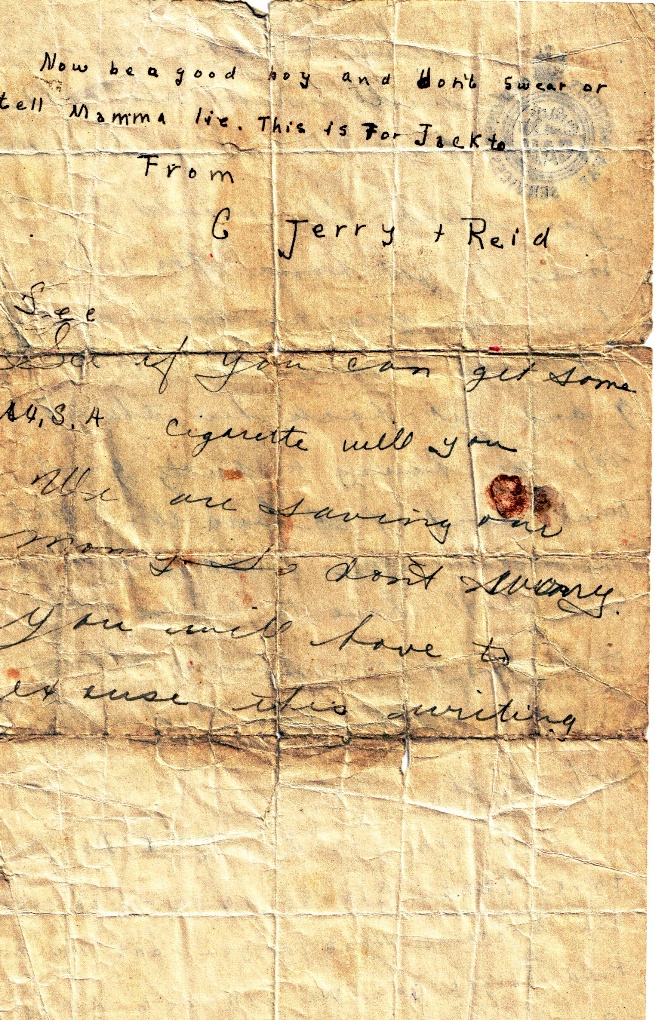 Now be a good boy and don't swear or
tell Mamma lie. This is For Jack to
From
C Jerry + Reid
See
See if you can get some
U.S.A cigarette will you
We are saving our
mony. So don't worry.
You will have to
excuse this writing